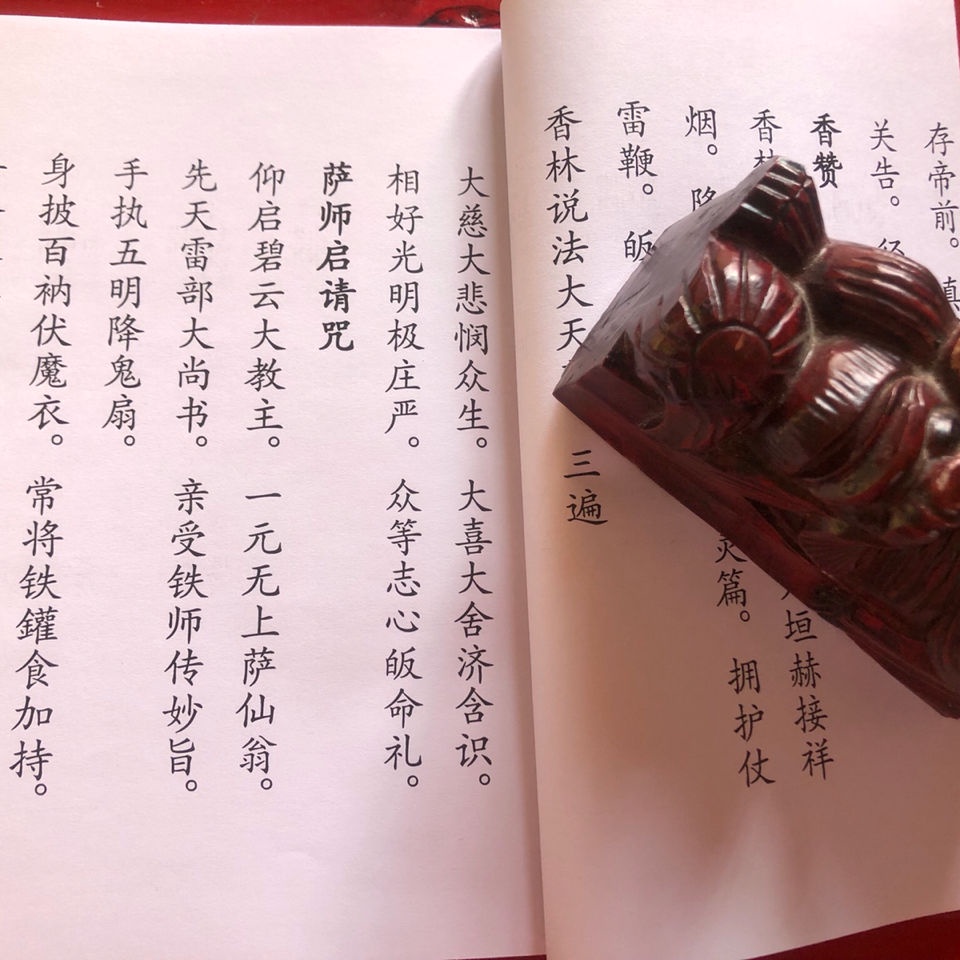 存帝前。
关告。
香赞
香林 垣赫接祥
烟。降 篇。拥护仗
雷鞭。皈
香林说法大天 三遍
大慈大悲悯众生。大喜大舍济含识。
相好光明极庄严。众等志心皈命礼。
萨师启请咒
仰启碧云大教主。一元无上萨仙翁。
先天雷部大尚书。亲受铁师传妙旨。
手执五明降鬼扇。
身披百衲伏魔衣。常将铁鑵食加持。